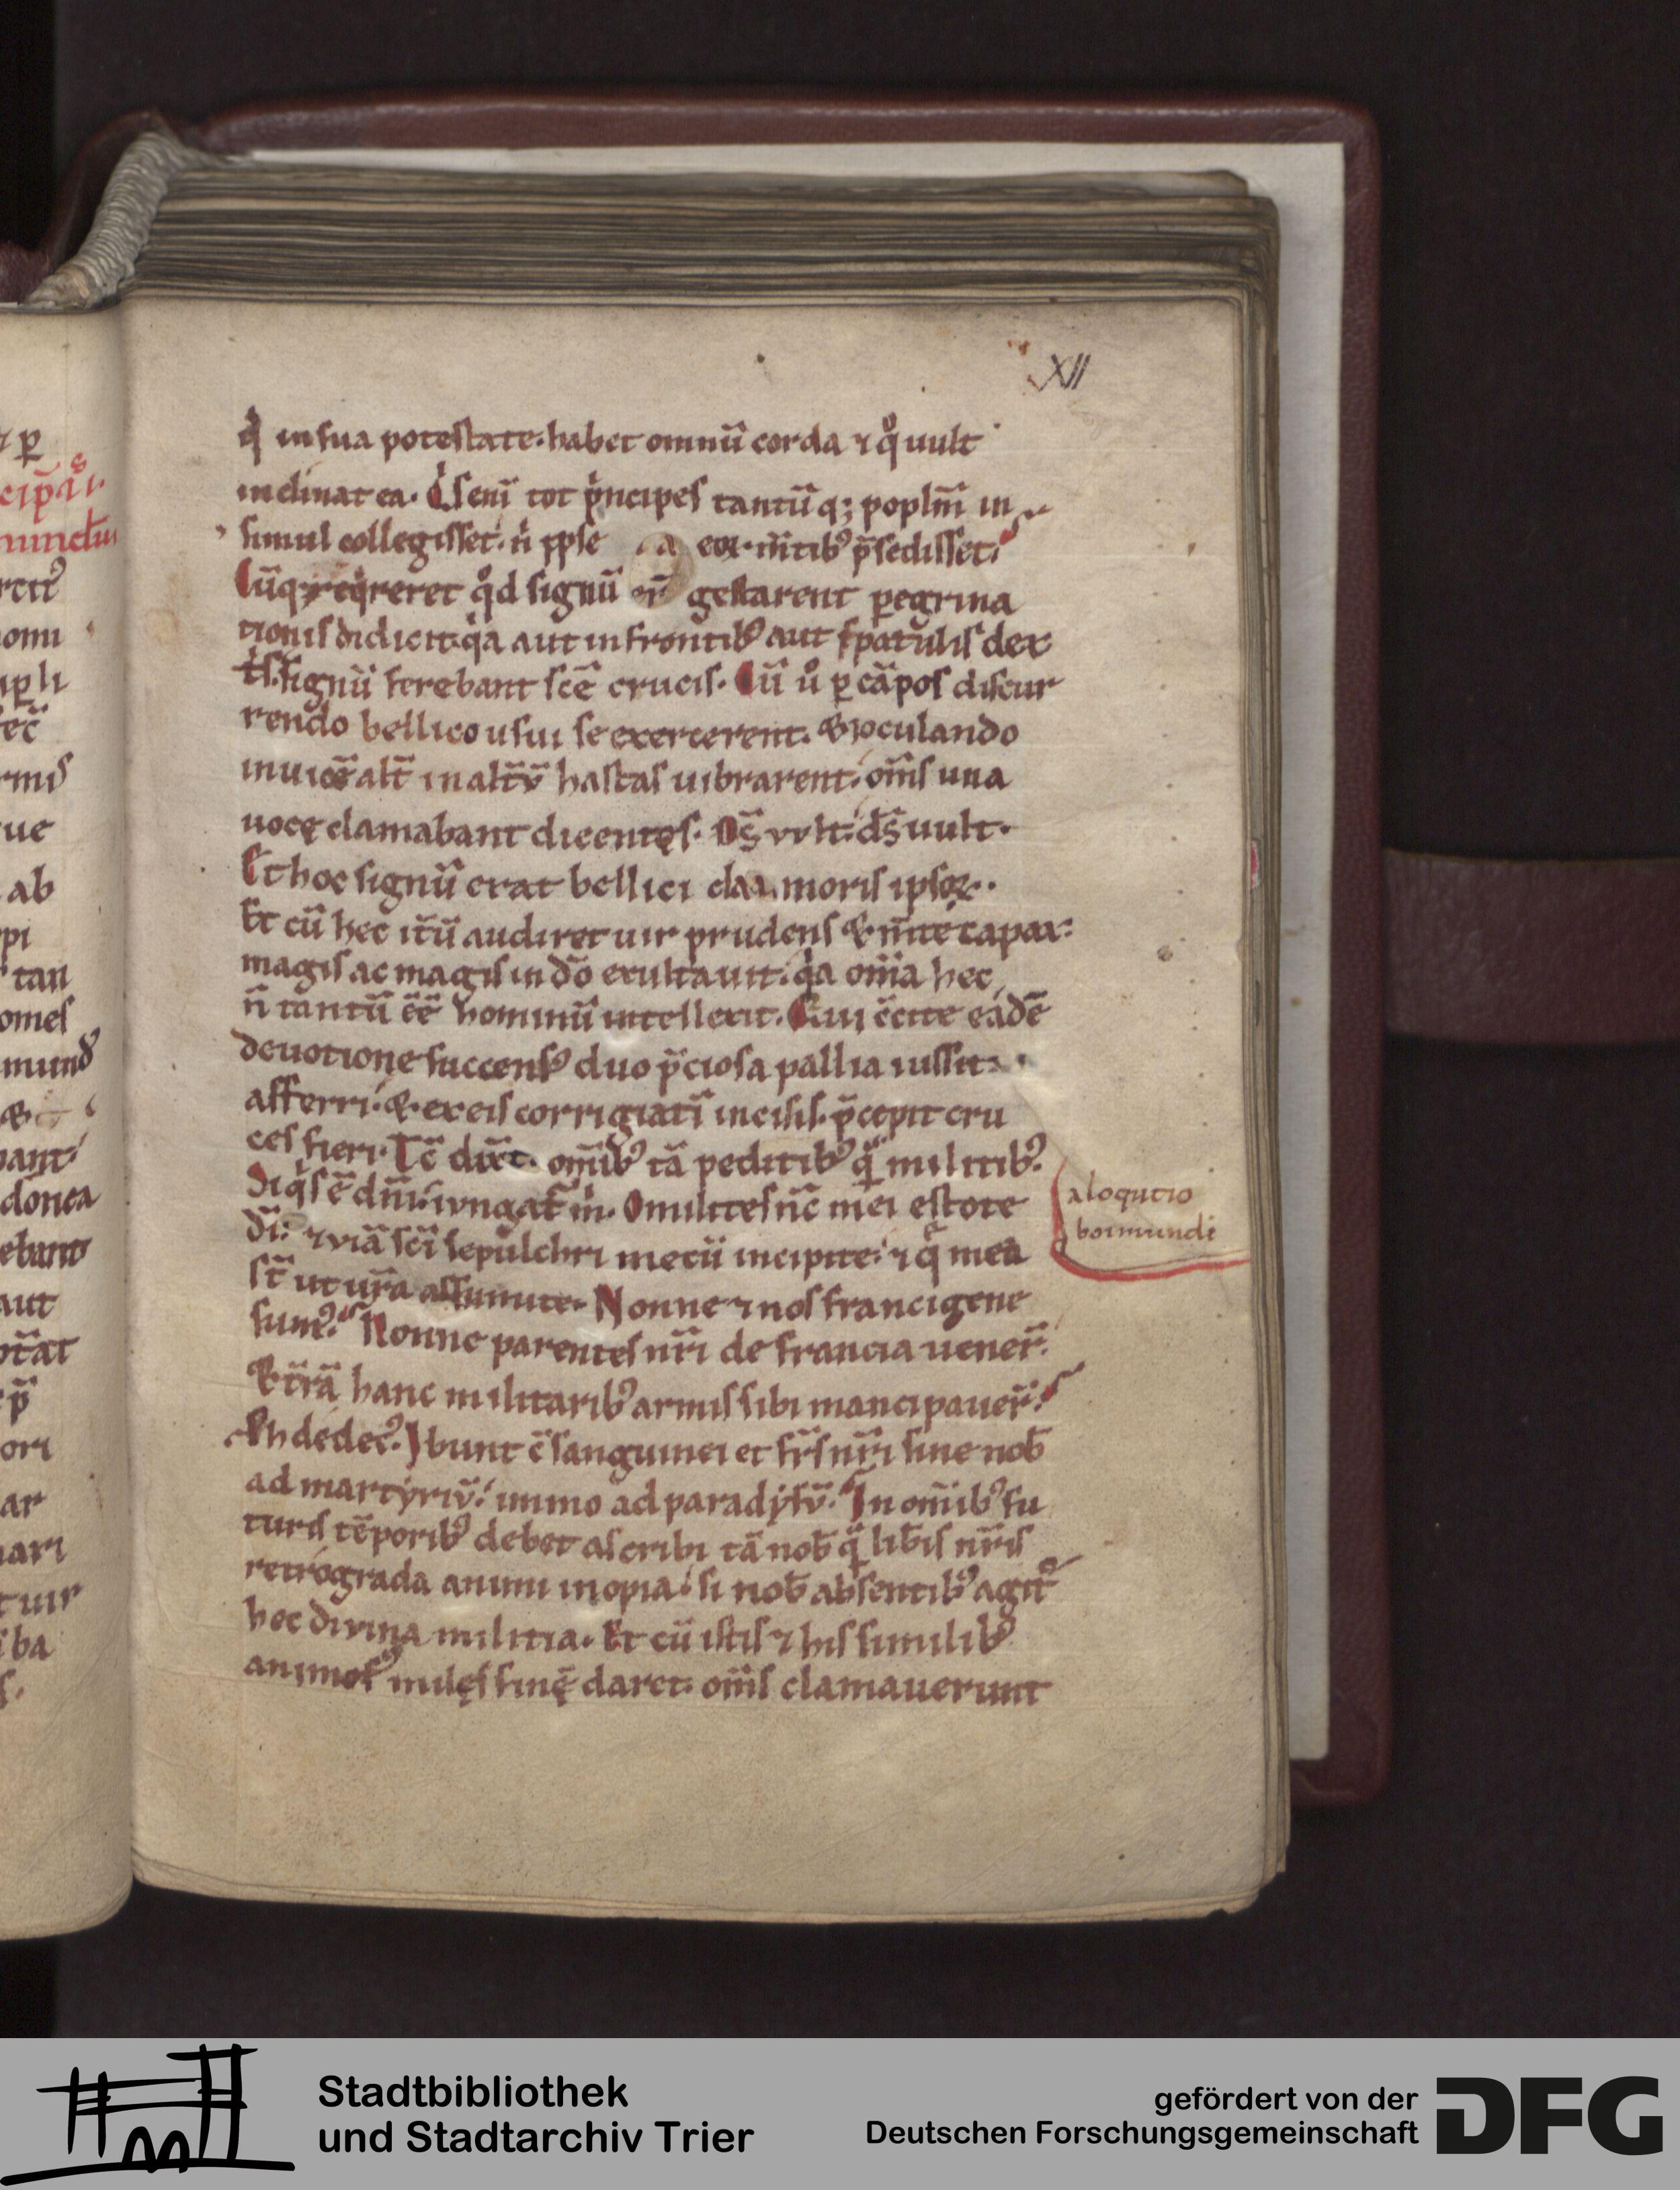 XII
q̇ in sua potestate. habet omniū corda ⁊ qͦ uult
inclinat ea. Q̇s enī tot pͥncipes tantū q; popl̄m in
simul collegisset. n̄ ipse eoꝝ m̄tibꝰ p̄sedisset.
Cūq; reqͥreret qͦd signū gestarent ꝑegrina
tionis didicit. qͥa aut in frontibꝰ aut spatulis dex
tͥs. signū ferebant sc̄e crucis. Cū uͦ ꝑ cāpos discur
rendo bellico usui se exercerent. & ioculando
inuicē alt̄ in altv̄ hastas uibrarent. om̄s una
uocę clamabant dicentęs. Ds̄ vvlt. ds̄ uult.
Et hoc signū erat bellici clamoris ipsoꝝ.
Et cū hec itū audiret uir prudens & m̄te capax:
magis ac magis in dō exultauit. qͥa om̄ia hec
n̄ tantū ēē hominū intellexit. Qui ēcite eadē
deuotione succensꝰ duo p̄ciosa pallia iussit
afferri. & ex eis corrigiatī incisis. p̄cepit cru
ces fieri. Tc̄ dix̄t. om̄ibꝰ tā peditibꝰ qͣ̄ militibꝰ.
Si qͥs ē dn̄i. ivngat̄ m̄. O milites nc̄ mei estote
dī. ⁊ viā scī sepulchri mecū incipite. ⁊ qͣ̄ mea
st̄ ut ur̄a assumite. Nonne ⁊ nos francigene
sumꝰ. Nonne parentes nr̄i de francia uener̄.
& tr̄ā hanc militaribꝰ armis sibi mancipauer̄.
Ꝓh dedecꝰ. Ibunt ē sanguinei et fr̄s nr̄i sine nob̄
ad martyriv̄. immo ad paradysv̄. In om̄ibꝰ fu
turis tēporibꝰ debet ascribi tā nob̄ qͣ̄ lib̄is nr̄is
retrograda animi inopia. si nob̄ absentibꝰ agit᷑
hec divina militia. Et cū istis ⁊ his similibꝰ
animosꝰ milęs finē daret. om̄s clamauerunt
aloqutio
boimundi
Stadtbibliothek
und Stadtarchiv Trier
gefördert von der
Deutschen Forschungsgemeinschaft
DFG